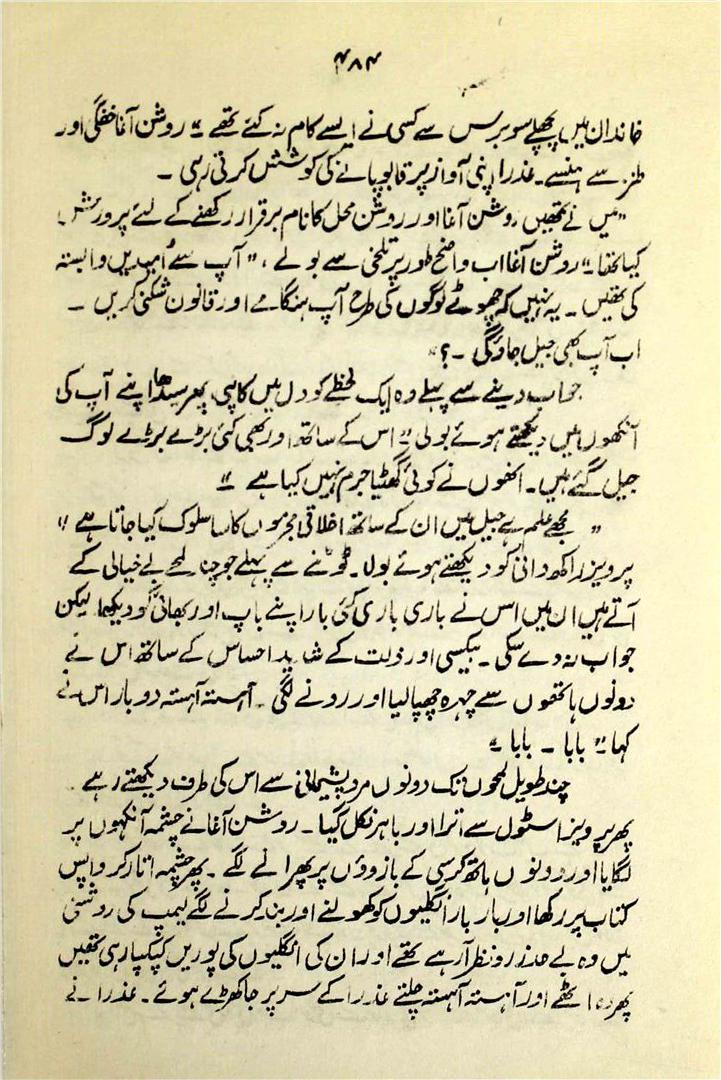 ۴۸۴
خاندان میں پچھلے سو برس سے کسی نے ایسے کام نہ کئے تھے ۔" روشن آغا خفگی اور
طنز سے ہنسے۔ عذرا اپنی آواز پر قابو پانے کی کوشش کرتی رہی ۔
"میں نے تمھیں روشن آغا اور روشن محل کا نام برقرار رکھنے کے لئے پرورش
کیا تھا۔" روشن آغا اب واضح طور پر تلخی سے بولے ، "آپ سے اُمیدیں وابستہ
کی تھیں ۔ یہ نہیں کہ چھوٹے لوگوں کی طرح آپ ہنگامے اور قانون شکنی کریں ۔
اب آپ بھی جیل جاؤگی ۔؟"
جواب دینے سے پہلے وہ ایک لحظے کو دل میں کانپی، پھر سیدھا اپنے آپ کی
آنکھوں میں دیکھتے ہوئے بولی "اس کے ساتھ اور بھی کئی بڑے بڑے لوگ
جیل گئے ہیں۔ انھوں نے کوئی گھٹیا جرم نہیں کیا ہے ۔"
"مجھے علم ہے جیل میں ان کے ساتھ اخلاقی مجرموں کا سا سلوک کیا جاتا ہے"
پرویز راکھ دانی کو دیکھتے ہوئے بولا۔ ٹوٹنے سے پہلے جو چند لمحے بے خیالی کے
آتے ہیں ان میں اس نے باری باری کئی بار اپنے باپ اور بھائی کو دیکھا لیکن
جواب نہ دے سکی ۔ بیکسی اور ذلت کے شدید احساس کے ساتھ اس نے
دونوں ہاتھوں سے چہرہ چھپا لیا اور رونے لگی ۔ آہستہ آہستہ دو بار اس نے
کہا "بابا ۔ بابا ۔"
چند طویل لمحوں تک دونوں مرد پشیمانی سے اس کی طرف دیکھتے رہے ۔
پھر پرویز اسٹول سے اترا اور باہر نکل گیا ۔ روشن آغا نے چشمہ آنکھوں پر
لگایا اور دونوں ہاتھ کرسی کے بازوؤں پر پھرانے لگے ۔ پھر چشمہ اتار کر واپس
کتاب پر رکھا اور بار بار انگلیوں کو کھولنے اور بند کرنے لگے لیمپ کی روشنی
میں وہ بے حد زرد نظر آ رہے تھے اور ان کی انگلیوں کی پوریں کپکپا رہی تھیں
پھر وہ اٹھے اور آہستہ آہستہ چلتے عذرا کے سر پر جا کھڑے ہوئے ۔ عذرا نے